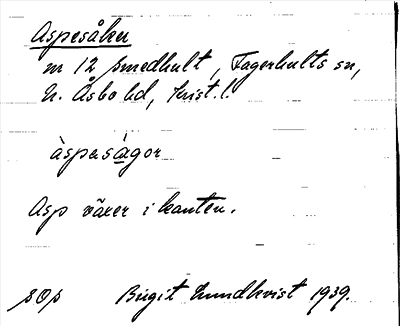 Aspesåker
m 12 Smedhult, Fagerhults sn,
N. Åsbo hd, Krist. l.
àspəságor
Asp växer i kanten.
Birgit Lundkvist 1939.